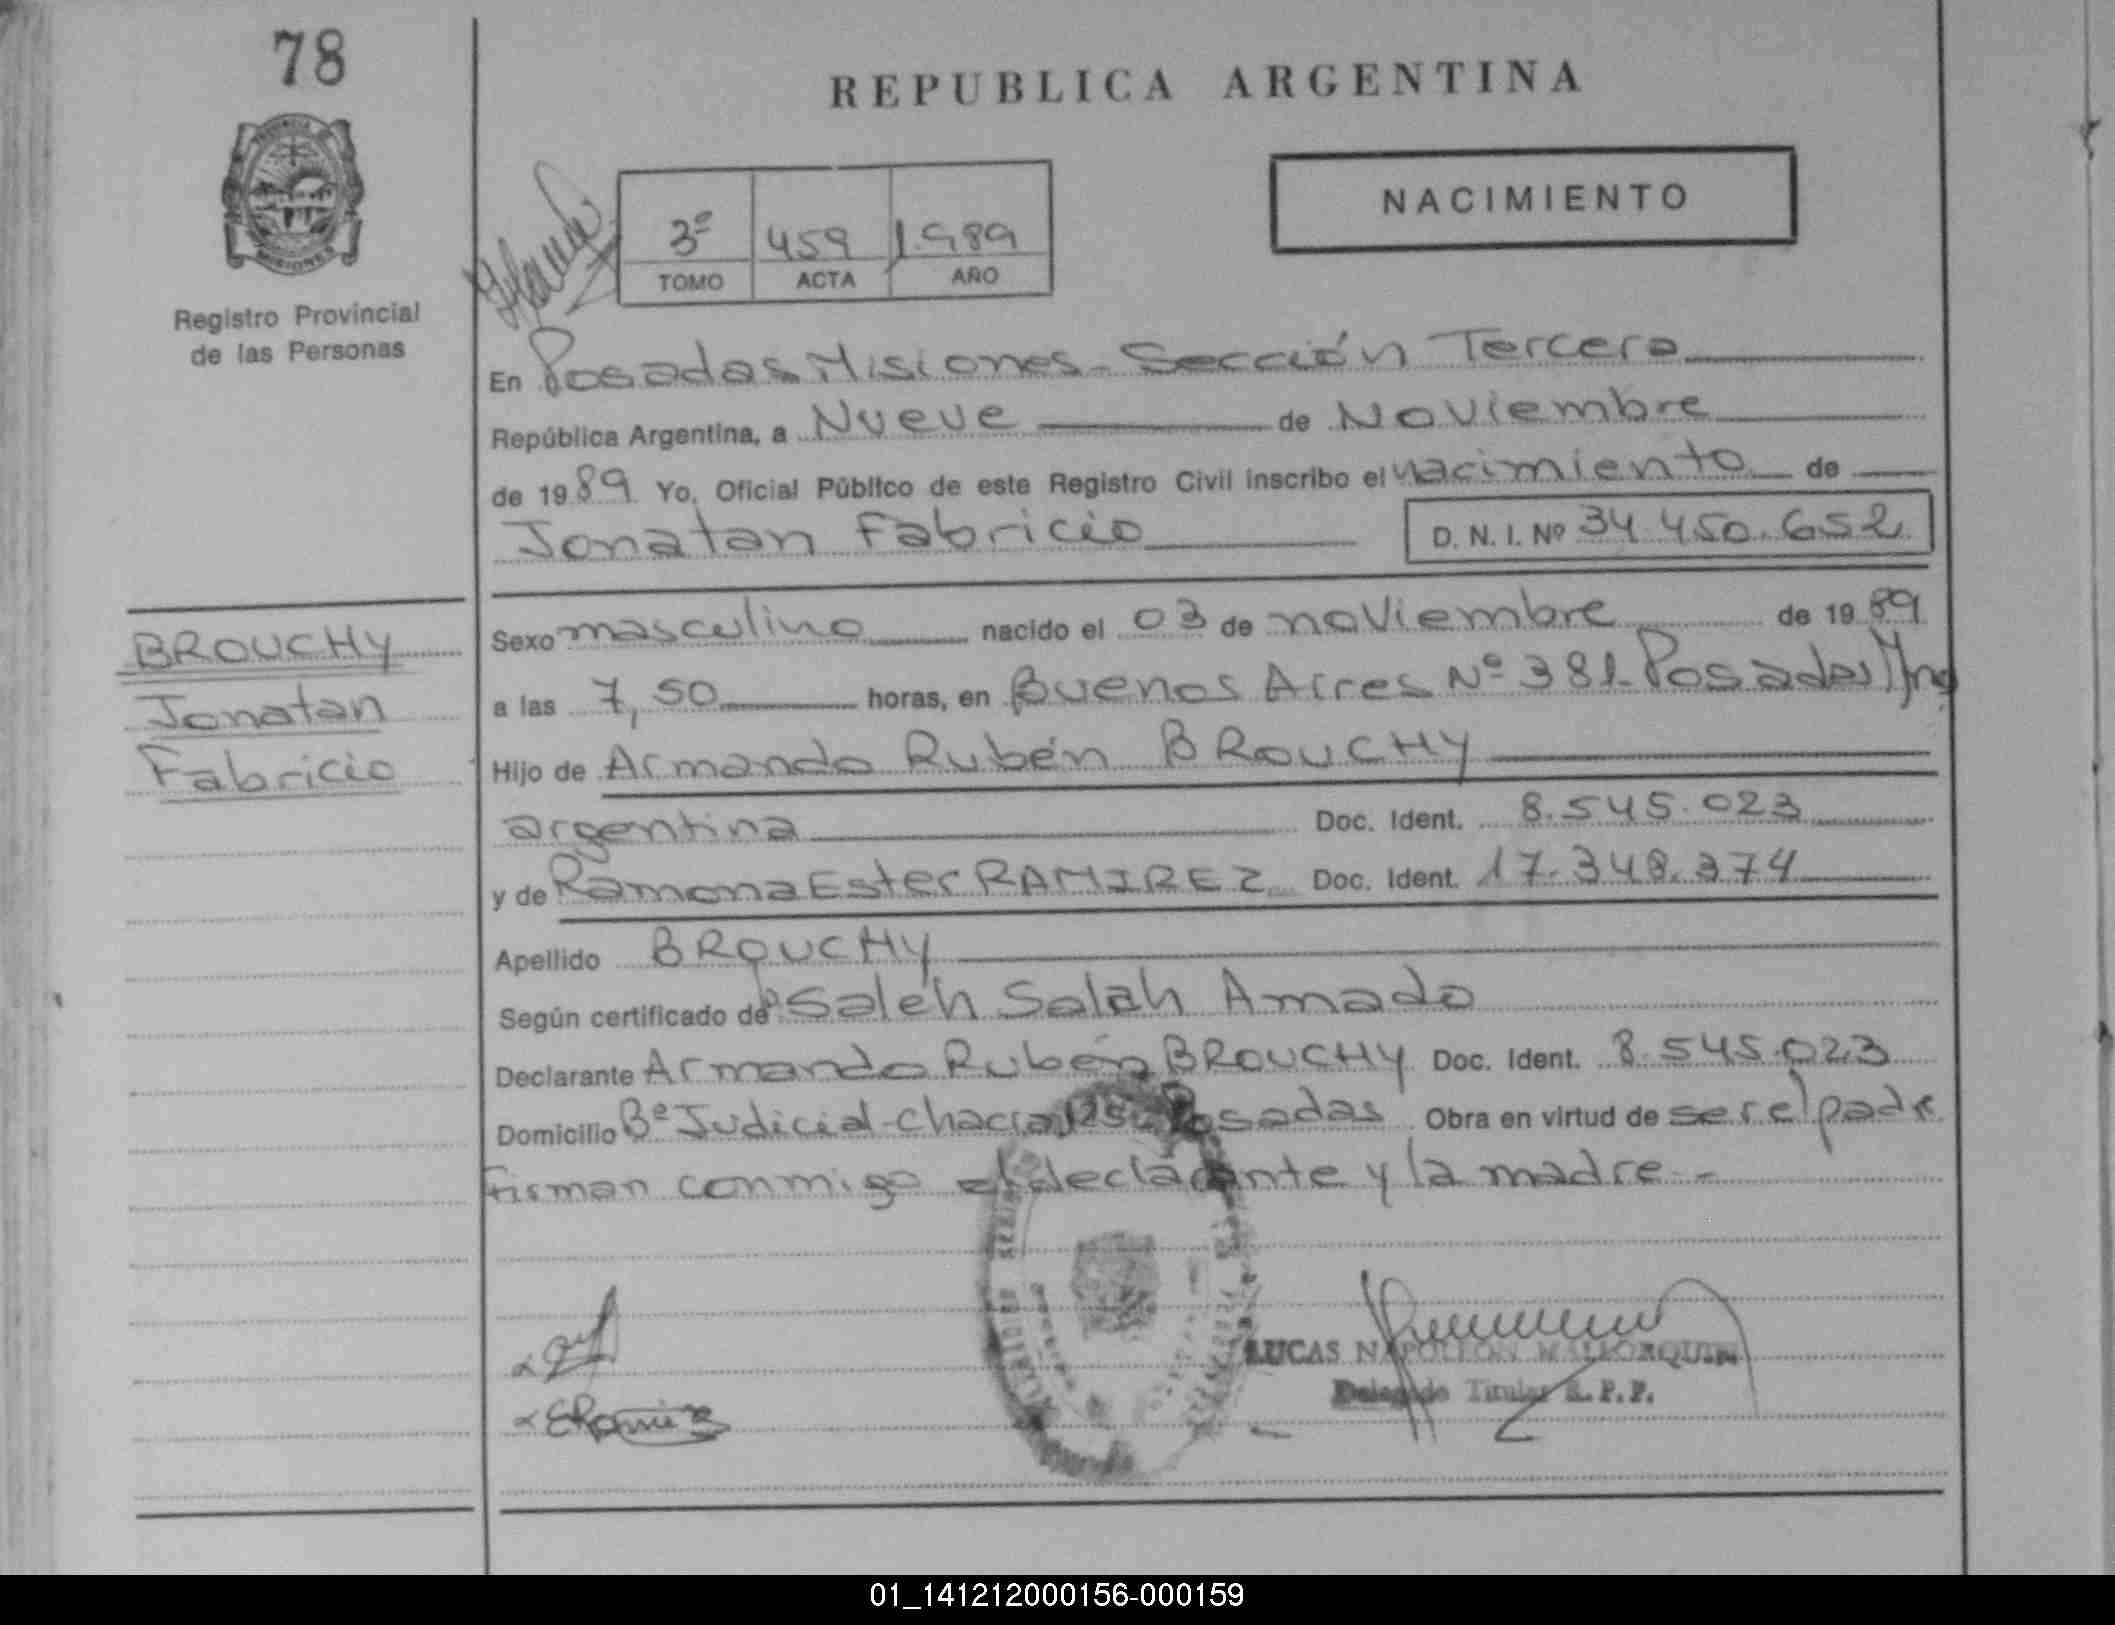 78
REPUBLICA ARGENTINA
NACIMIENTO
3º 459 1.989
TOMO ACTA AÑO
MISIONES
Registro Provincial
de las Personas
En Posadas Misiones - Sección Tercera
República Argentina, a Nueve de Noviembre
de 1989 Yo, Oficial Público de este Registro Civil inscribo el nacimiento de
Jonatan Fabricio D. N. I. Nº 34.450.652
BROUCHY
Jonatan
Fabricio
Sexo masculino nacido el 03 de noviembre de 1989
a las 7,50 horas, en Buenos Aires Nº 381- Posadas Mnes
Hijo de Armando Rubén BROUCHY
argentina Doc. Ident. 8.545.023
y de Ramona Ester RAMIREZ Doc. Ident. 17.348.374
Apellido BROUCHY
Según certificado de Saleh Salah Amado
Declarante Armando Rubén BROUCHY Doc. Ident. 8.545.023
Domicilio Bº Judicial - Chacra Posadas Obra en virtud de ser el padre
Firman conmigo el declarante y la madre.-
ERamirez
LUCAS NAPOLEON MALLORQUIN
Delegado Titular R.P.P.
01_141212000156-000159